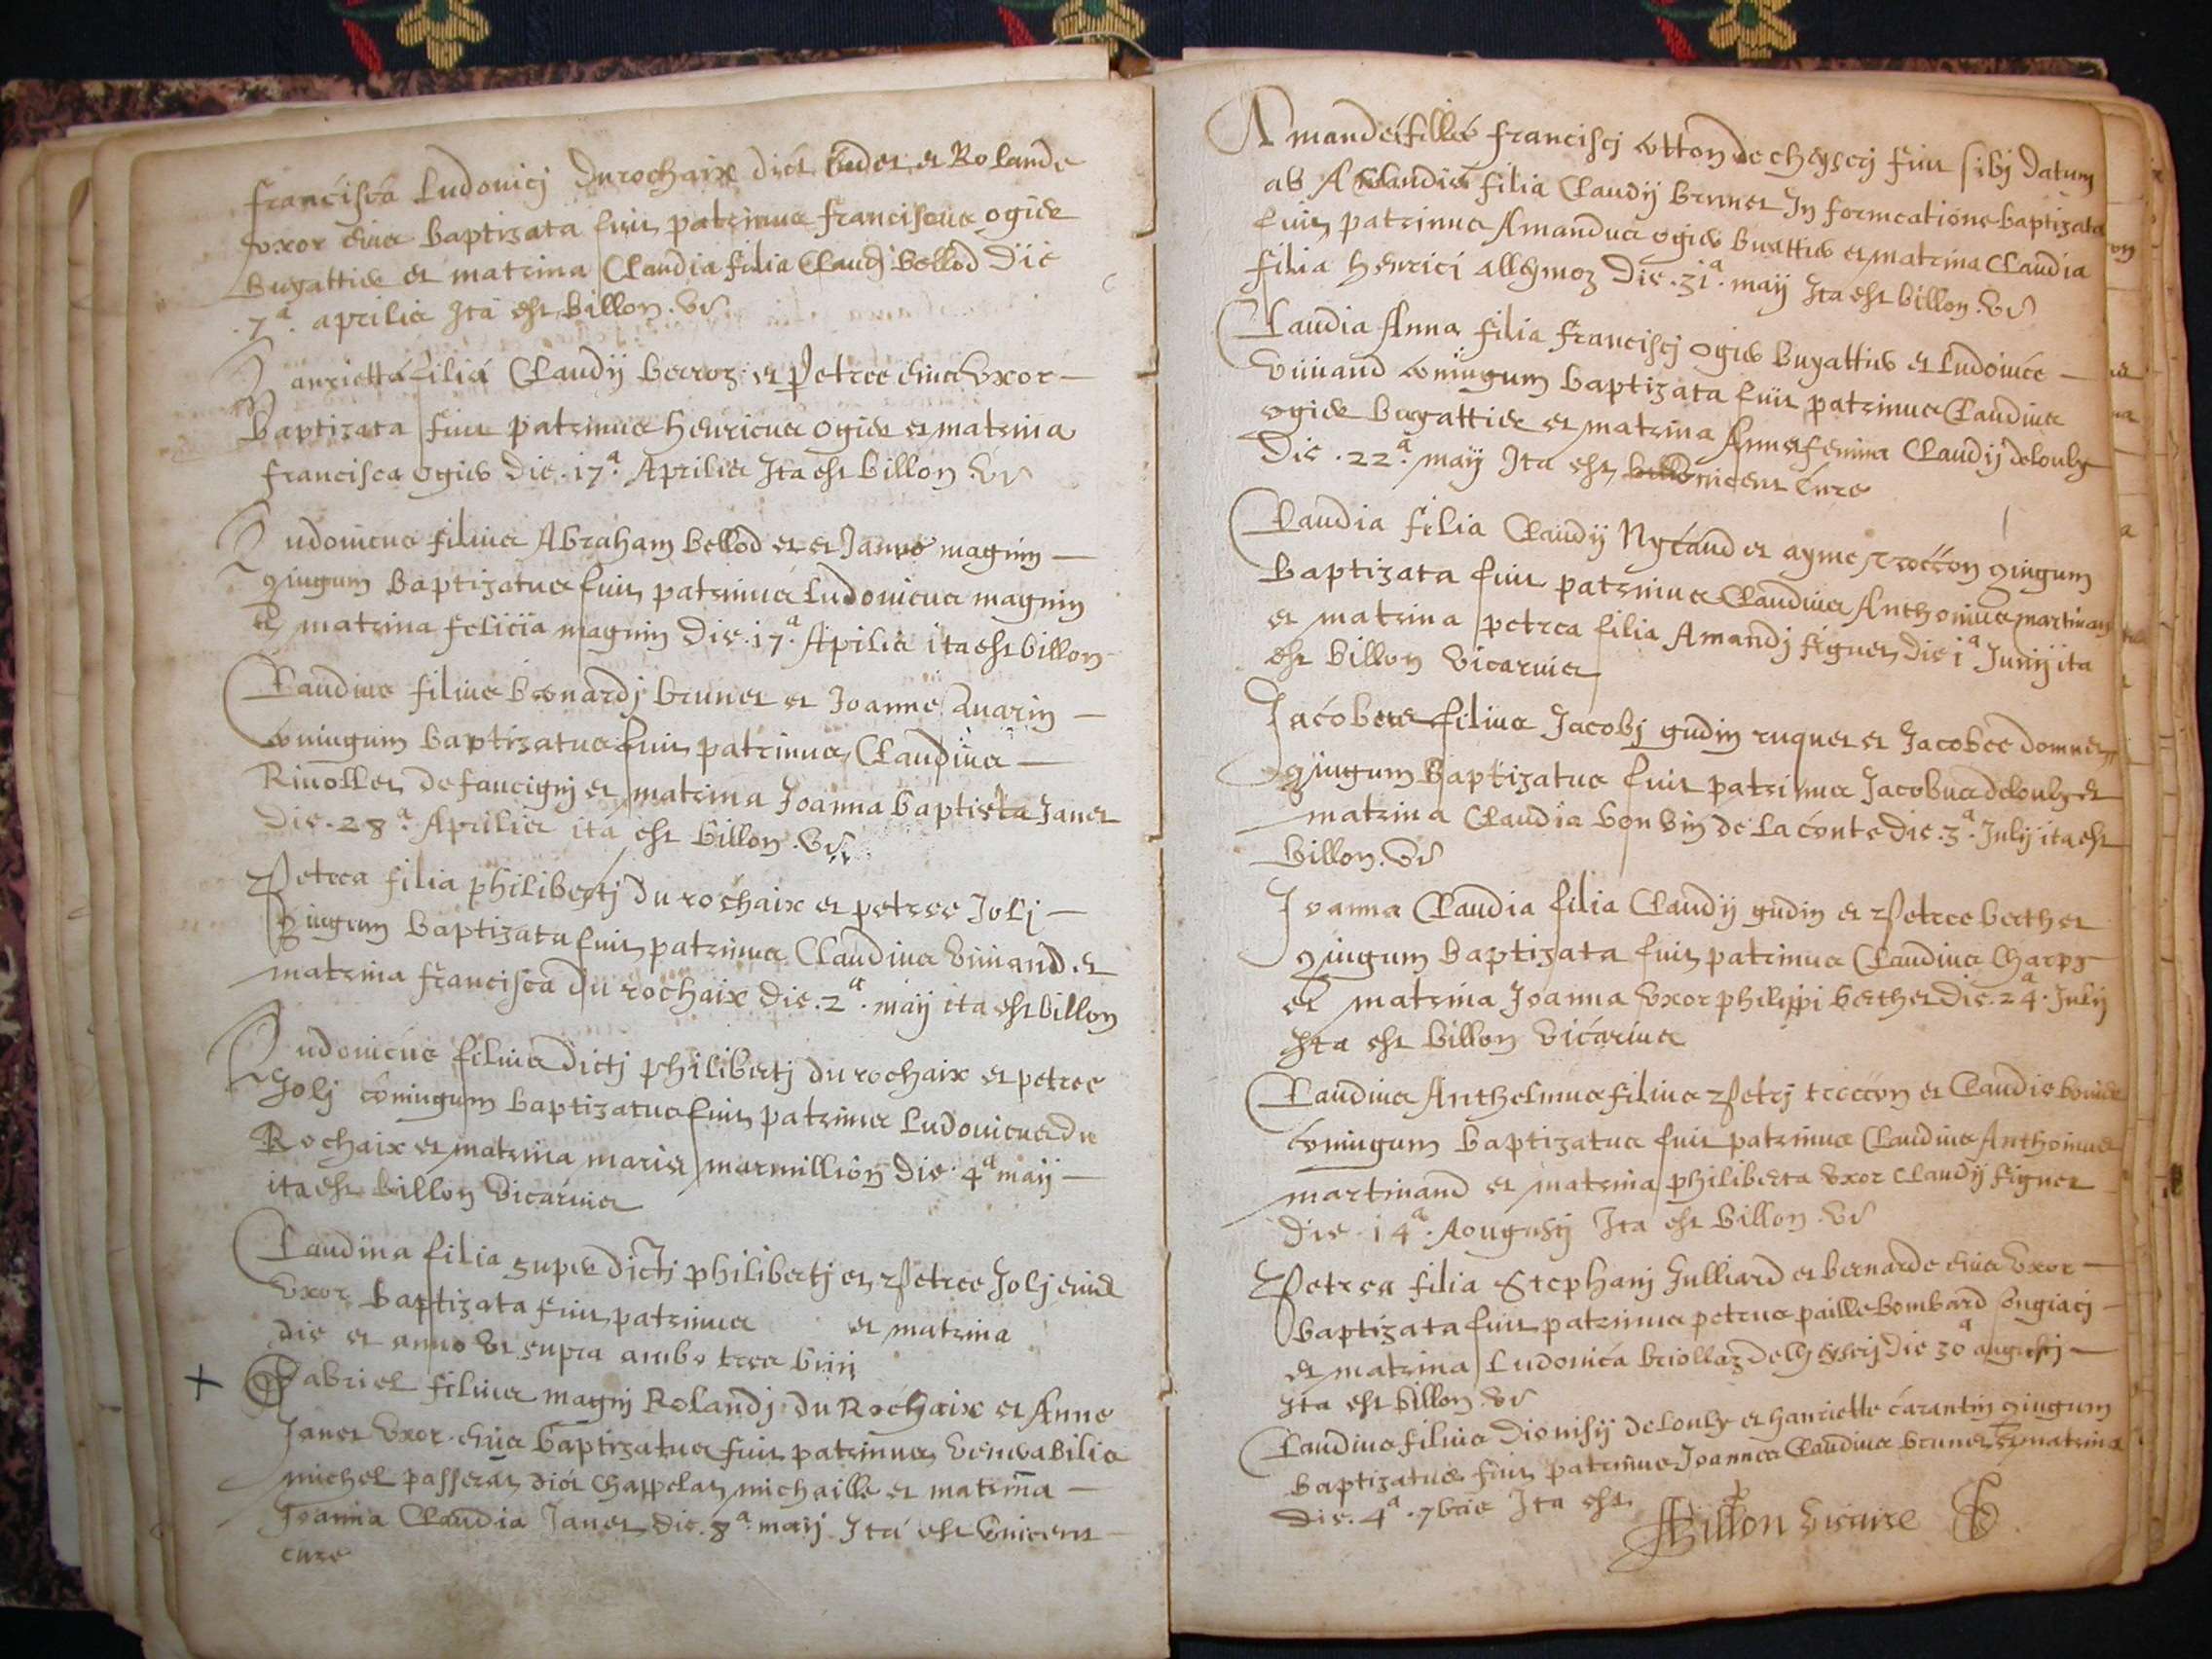 francisca Ludovicj Durochaix dict et Rolande
uxor eius baptizata fuit patrinus franciscus ogier
bugattier et matrina Claudia filia Claudj bellod Die
.7a. aprilis Ita est billon. vs
Hanrietta filia Claudij berroz et Petree eius uxor —
baptizata fuit patrinus henricus ogier et matrina
francisca ogier die .17a. Aprilis Ita est billon vs
Ludovicus filius Abraham bellod et et Janne magnin —
9iugum baptizatus fuit patrinus Ludovicus magnin
et matrina felicia magnin die .17a. Apilis ita est billon
Claudius filius bernardj brunet et Joanne avarin —
coniugum baptizatus fuit patrinus Claudius —
Rivollet de faucignj et matrina Joanna baptista Janet
die .28a. Aprilis ita est billon vs
Petrea filia philibertj du rochaix et petree Jolj —
9iugum baptizata fuit patrinus Claudius vivand et
matrina francisca du rochaix die .2a. maij ita est billon
Ludovicus filius dictj philibertj du rochaix et petree
Jolj coniugum baptizatus fuit patrinus Ludovicus du
Rochaix et matrina maria marmillion die 4a maij —
ita est billon vicarius
Claudina filia supradictj philibertj et Petree Jolj eius
uxor baptizata fuit patrinus et matrina
die et anno ut supra ambo
+ Gabriel filius magnj Rolandj du Rochaix et Anne
Janet uxor eius baptizatus fuit patrinus venerabilis
michel passerat dict Chappelat michaille et matrina —
Joanna Claudia Janet die .8a. maij Ita est vnicent —
cure
Amandea filia franciscj cotton de cheyserj fuit sibj datum
ab filia Claudij brunet In fornicatione baptizata
fuit patrinus Amandus ogier et matrina Claudia
filia henricj allemoz die .31a. maij Ita est billon. vs
Claudia Anna filia franciscj ogier bugattier et Ludovice —
vivand coniugum baptizata fuit patrinus Claudius
ogier bugattier et matrina Anna femina Claudij deloulz
die .22a. maij Ita est vnicent Cure
Claudia filia Claudij Nycaud et ayme troccon 9iugum
baptizata fuit patrinus Claudius Anthonius martinand
et matrina petrea filia Amandj figuet die 1a Junij ita
est billon vicarius
Jacobus filius Jacobj gudin ruquet et Jacobee domnet
9iugum baptizatus fuit patrinus Jacobus deloulz et
matrina Claudia bonvin de la conte die .3a. Julij ita est
billon. vs
Joanna Claudia filia Claudij gudin et Petree berthet
9iugum baptizata fuit patrinus Claudius Charpy
et matrina Joanna uxor philippi berthet die .24a. Julij
Ita est billon vicarius
Claudius Anthelmus filius Petrj troccon et Claudie
coniugum baptizatus fuit patrinus Claudius Anthonius
martinand et matrina philiberta uxor Claudij figuet
die .14a. Aougustj Ita est billon. vs
Petrea filia Stephanj Julliard et bernarde eius uxor —
baptizata fuit patrinus petrus paillebombard
et matrina Ludovica briollaz de cheyserj die 30a augustj —
Ita est billon. vs
Claudius filius Dionisij deloulz et hanriette carantin 9iugum
baptizatus fuit patrinus Joannes Claudius brunet et matrina
die. 4a. 7bris Ita est.
Billon vicaire